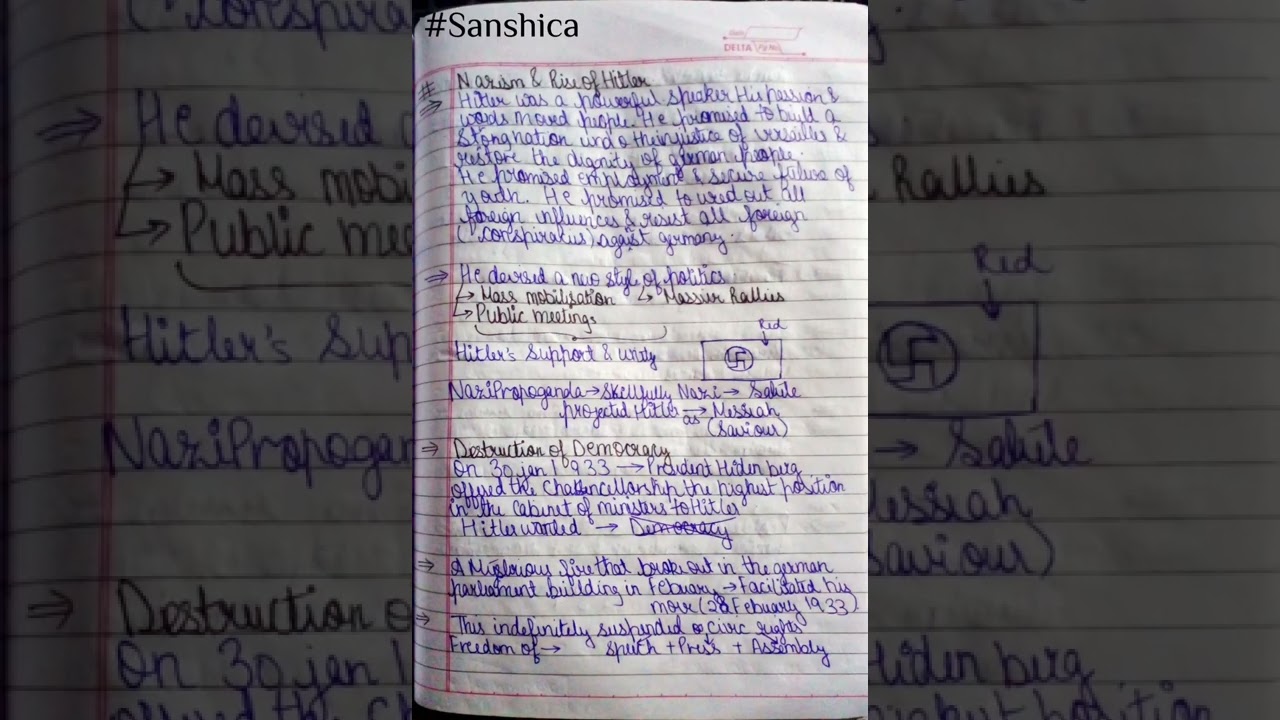 #Sanshica
DELTA Pg No
# Nazism & Rise of Hitler
⇒ Hitler was a powerful speaker His passion &
words moved people. He promised to build a
Stong nation undo the injustice of versailles &
restore the dignity of german people.
He promised employment & secure future of
youth. He promised to weed out all
foreign influences & resist all foreign
("conspiracies) against germany.
⇒ He devised a new style of politics
↳ Mass mobilisation ↳ Massive Rallies
↳ Public meetings
Red
Hitler's Support & unity
Nazi Propoganda → Skillfully Nazi → Salute
projected Hitler as → Messiah
(Saviour)
⇒ Destruction of Democracy
On 30 jan 1933 → President Hiden berg
offered the Chancellorship, the highest position
in the cabinet of ministers to Hitler
Hitler wanted → Democracy
⇒ A Mysterious fire that broke out in the german
parliament building in Febuary → Facilitated his
move (28 Febuary 1933)
⇒ This indefinitely suspended civic rights
Freedom of → speech + Press + Assembly